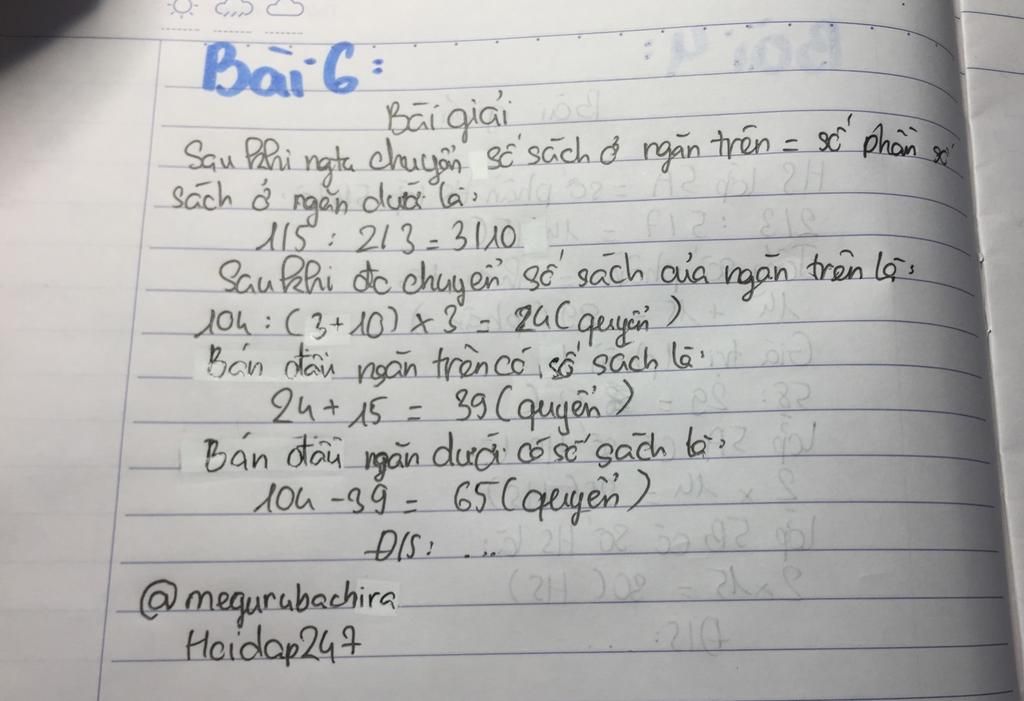 Bài 6:
Bài giải
Sau khi ngta chuyển số sách ở ngăn trên = số phần số
sách ở ngăn dưới là:
1/5 : 2/3 = 3/10
Sau khi đc chuyển số sách của ngăn trên là:
104 : (3+10) x 3 = 24 (quyển)
Bán đầu ngăn trên có số sách là:
24 + 15 = 39 (quyển)
Bán đầu ngăn dưới có số sách là:
104 - 39 = 65 (quyển)
Đ/S: ...
@megurubachira
Hoidap247